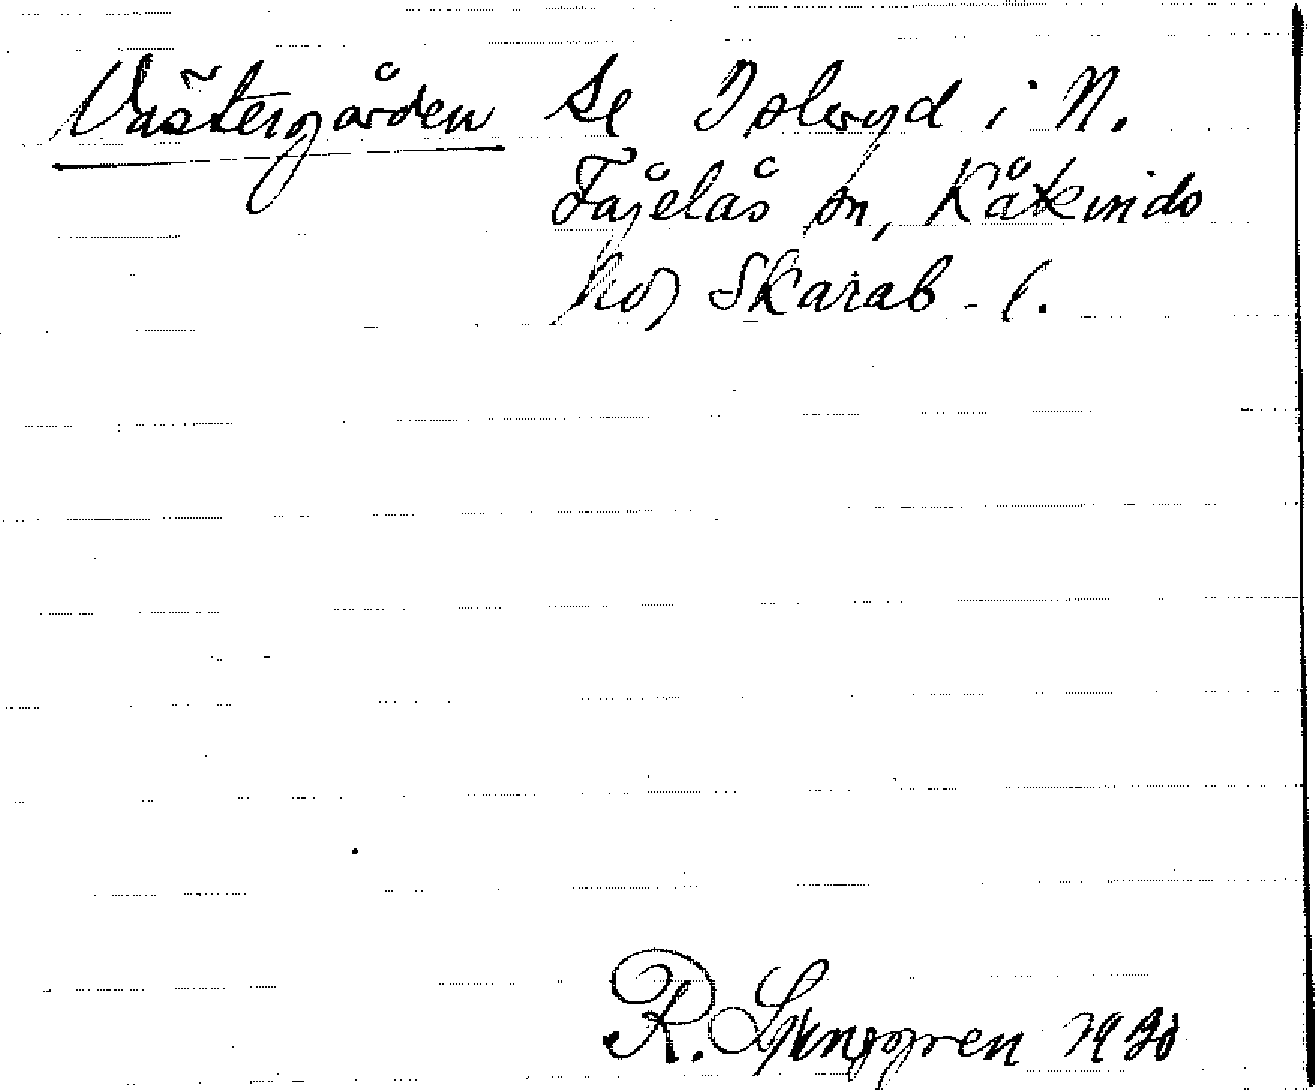 Västergården Se Islwyd i N.
Fågelås sn, Kåkinds
hd, Skarab. l.
R. Ljunggren 1930